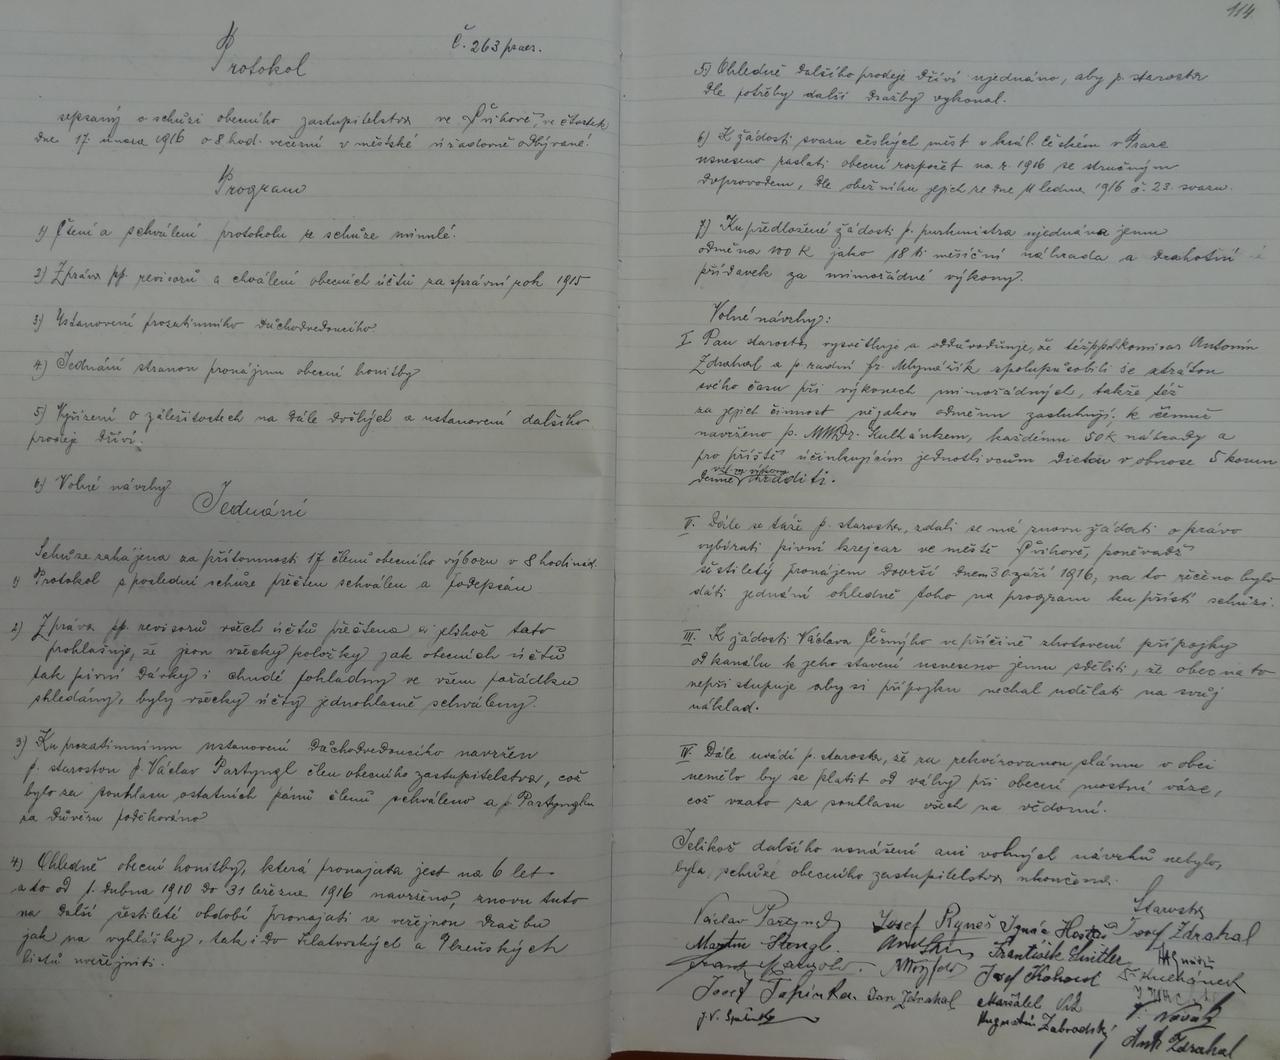 Č. 263 praes.
Protokol
sepsaný o schůzi obecního zastupitelstva ve Švihově, ve čtvrtek
dne 17. února 1916 o 8 hod. večerní v městské úřadovně odbývané.
Program
1) Čtení a schválení protokolu ze schůze minulé.
2) Zpráva pp. revisorů a chválení obecních účtů za správní rok 1915
3) Ustanovení prozatimního důchodvedoucího
4) Jednání stranou pronájmu obecní honitby
5) Vyřízení o záležitostech na dále došlých a ustanovení dalšího
prodeje dříví.
6) Volné návrhy
Jednání
Schůze zahájena za přítomnosti 17 členů obecního výboru v 8 hodin
1) Protokol s poslední schůze přečten schválen a podepsán
2) Zpráva pp. revisorů všech účtů přečtena a jelikož tato
prohlašuje, že jsou všecky položky jak obecních účtů
tak pivní dávky i chudé pokladny ve všem pořádku
shledány, byly všecky účty jednohlasně schváleny.
3) Ku prozatimnímu ustanovení důchodvedoucího navržen
p. starostou p. Václav Partyngl člen obecního zastupitelstva, což
bylo za souhlasu ostatních pánů členů schváleno a p. Partynglu
za důvěru poděkováno
4) Ohledně obecní honitby, která pronajata jest na 6 let
a to od 1. dubna 1910 do 31 března 1916 navrženo, znovu tuto
na další šestileté období pronajati ve veřejnou dražbu
jak na vyhlášky, tak i do Klatovských a Plzeňských
listů uveřejniti.
114
5) Ohledně dalšího prodeje dříví ujednáno, aby p. starosta
dle potřeby další dražby vykonal.
6) K žádosti svazu českých měst v král. Českém v Praze
usneseno zaslati obecní rozpočet na r. 1916 se stručným
doprovodem, dle oběžníku jejich ze dne 11 ledna 1916 č. 23. svazu.
7) Ku předložené žádosti p. purkmistra ujednána jemu
odměna 100 K jako 18 ti měsíční náhrada a drahotní
přídavek za mimořádné výkony.
Volné návrhy:
I Pan starosta vysvětluje a odůvodňuje, že též pp. komisar Antonín
Zdrahal a p. radní Fr. Mlynářík spolupůsobili se ztrátou
svého času při výkonech mimořádných, takže též
za jejich činnost nějakou odměnu zasluhují; k čemuž
navrženo p. MUDr. Kulhánkem, každému 50 K náhrady a
pro příště účinkujícím jednotlivcům dietou v obnose 5 korun
denně hraditi.
II. Dále se táže p. starosta, zdali se má znovu žádati o právo
vybírati pivní krejcar ve městě Švihově, poněvadž
šestiletý pronájem dovrší dnem 30 září 1916, na to řečeno bylo
dáti jednání ohledně toho na program ku příští schůzi.
III. K žádosti Václava Černého ve příčině zhotovení přípojky
od kanálu k jeho stavení usneseno jemu sděliti, že obec na to
nepřistupuje aby si přípojku nechal udělati na svůj
náklad.
IV. Dále uvádí p. starosta, že za rekvirovanou slámu v obci
nemělo by se platit od váhy při obecní mostní váze,
což vzato za souhlasu všech na vědomí.
Jelikož dalšího usnášení ani volných návrhů nebylo,
byla schůze obecního zastupitelstva ukončena.
Starosta
Václav Partyngl Josef Ryneš Ignác Josef Zdrahal
Martin Stengl. František
Josef Kohout Kulhánek
Josef Tapinka Jan Zdrahal J. Novák
Augustin Zábrodský Ant. Zdrahal